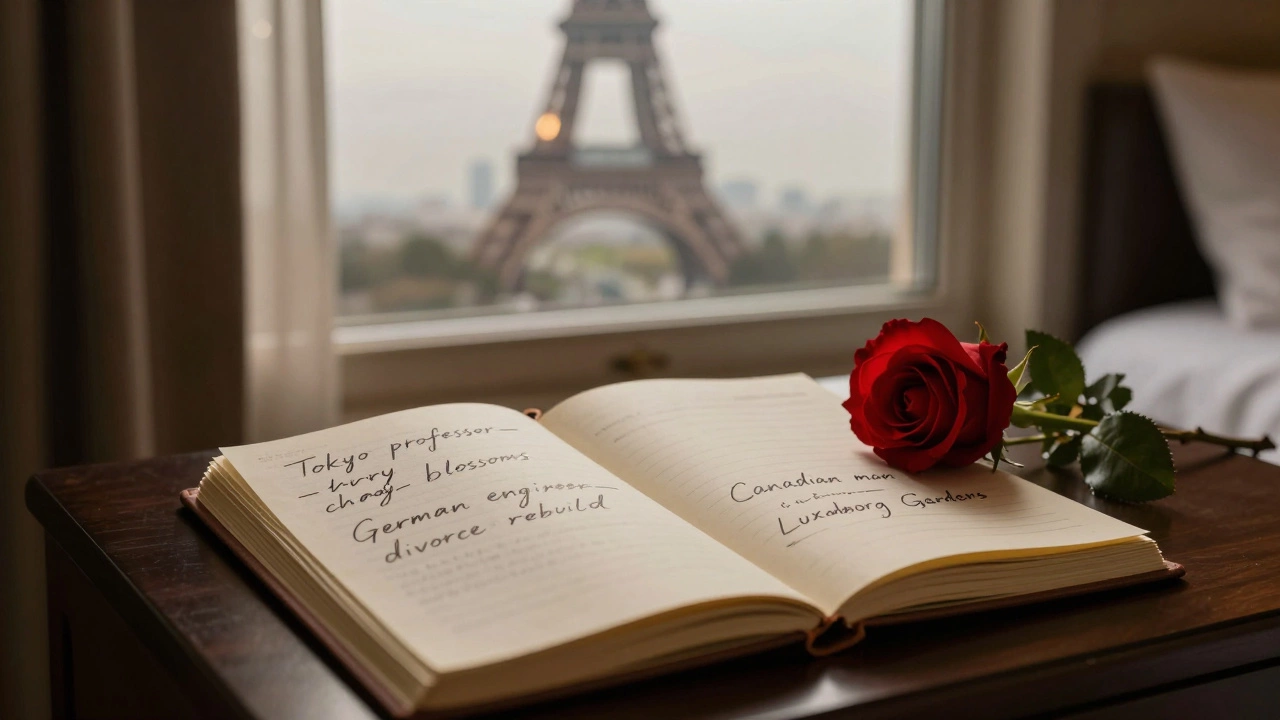 Tokyo professor—
blossoms
German engineer
divorce rebuild
Canadian man
Gardens